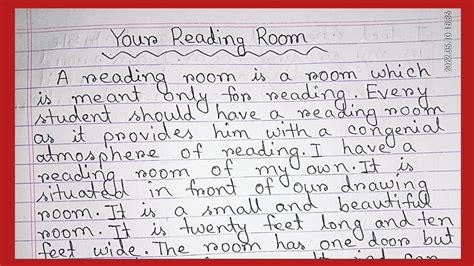 Your Reading Room
A reading room is a room which
is meant only for reading. Every
student should have a reading room
as it provides him with a congenial
atmosphere of reading. I have a
reading room of my own. It is
situated in front of our drawing
room. It is a small and beautiful
room. It is twenty feet long and ten
feet wide. The room has one door but